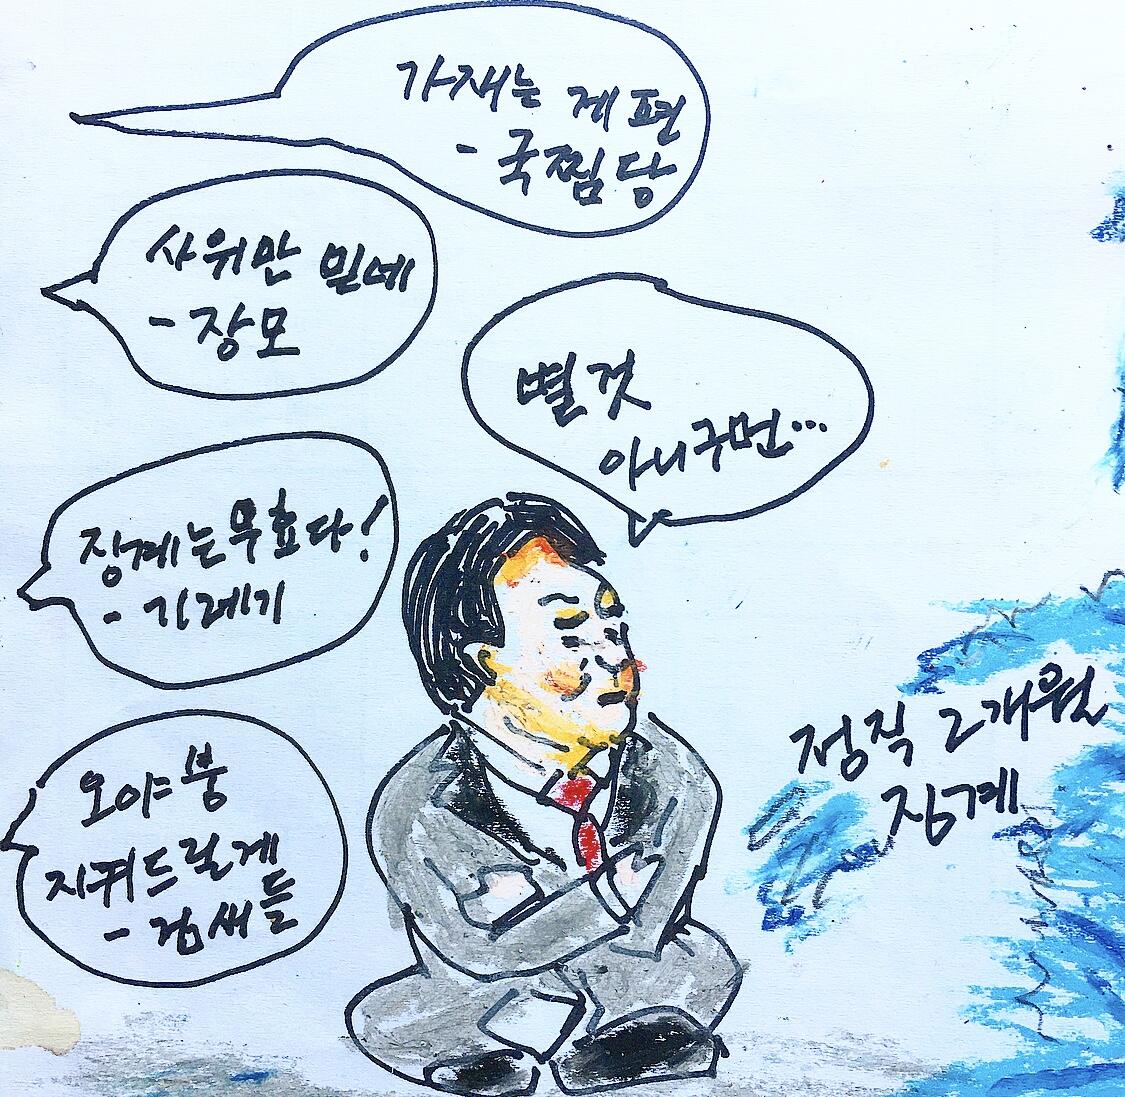 가재는 게 편
- 국찜당
사위만 믿네
- 장모
별것
아니구먼...
징계는 무효다!
- 기레기
오야붕
지켜드릴게
- 검새들
정직 2개월
징계